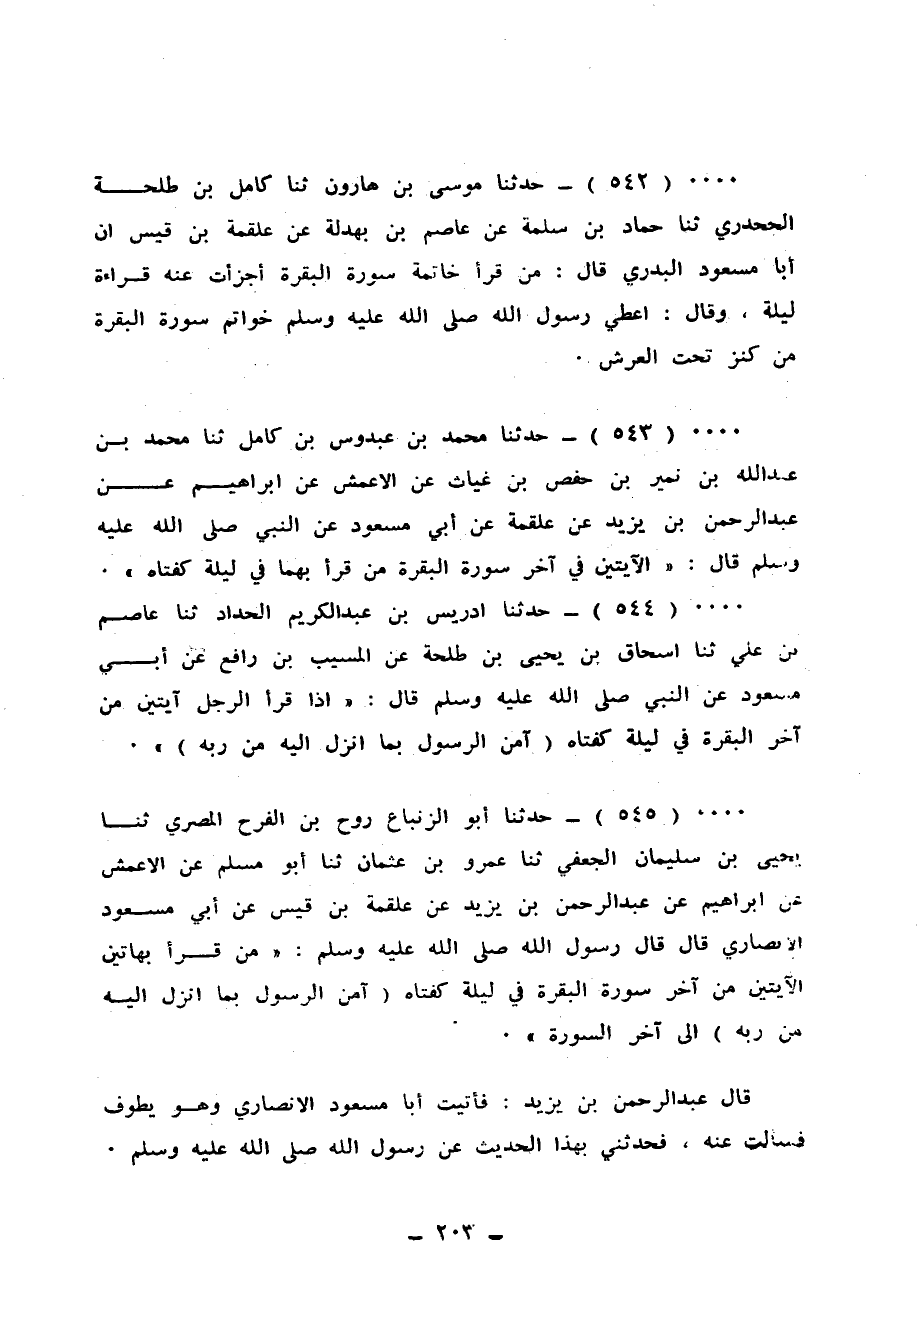 ٠٠٠٠ ( ٥٤٢ ) ـ حدثنا موسى بن هارون ثنا كامل بن طلحـــــة
الجحدري ثنا حماد بن سلمة عن عاصم بن بهدلة عن علقمة بن قيس ان
أبا مسعود البدري قال : من قرأ خاتمة سورة البقرة أجزأت عنه قــراءة
ليلة ، وقال : اعطي رسول الله صلى الله عليه وسلم خواتم سورة البقرة
من كنز تحت العرش ٠
٠٠٠٠ ( ٥٤٣ ) ـ حدثنا محمد بن عبدوس بن كامل ثنا محمد بــن
عبدالله بن نمير بن حفص بن غياث عن الاعمش عن ابراهيـــم عـــــن
عبدالرحمن بن يزيد عن علقمة عن أبي مسعود عن النبي صلى الله عليه
وسلم قال : « الآيتين في آخر سورة البقرة من قرأ بهما في ليلة كفتاه » ٠
٠٠٠٠ ( ٥٤٤ ) ـ حدثنا ادريس بن عبدالكريم الحداد ثنا عاصــم
بن علي ثنا اسحاق بن يحيى بن طلحة عن المسيب بن رافع عن أبـــــي
مسعود عن النبي صلى الله عليه وسلم قال : « اذا قرأ الرجل آيتين من
آخر البقرة في ليلة كفتاه ( آمن الرسول بما انزل اليه من ربه ) » ٠
٠٠٠٠ ( ٥٤٥ ) ـ حدثنا أبو الزنباع روح بن الفرح المصري ثنـــا
يحيى بن سليمان الجعفي ثنا عمرو بن عثمان ثنا أبو مسلم عن الاعمش
عن ابراهيم عن عبدالرحمن بن يزيد عن علقمة بن قيس عن أبي مســعود
الانصاري قال قال رسول الله صلى الله عليه وسلم : « من قـــرأ بهاتين
الآيتين من آخر سورة البقرة في ليلة كفتاه ( آمن الرسول بما انزل اليــه
من ربه ) الى آخر السورة » ٠
قال عبدالرحمن بن يزيد : فأتيت أبا مسعود الانصاري وهــو يطوف
فسألت عنه ، فحدثني بهذا الحديث عن رسول الله صلى الله عليه وسلم ٠
ـ ٢٠٣ ـ